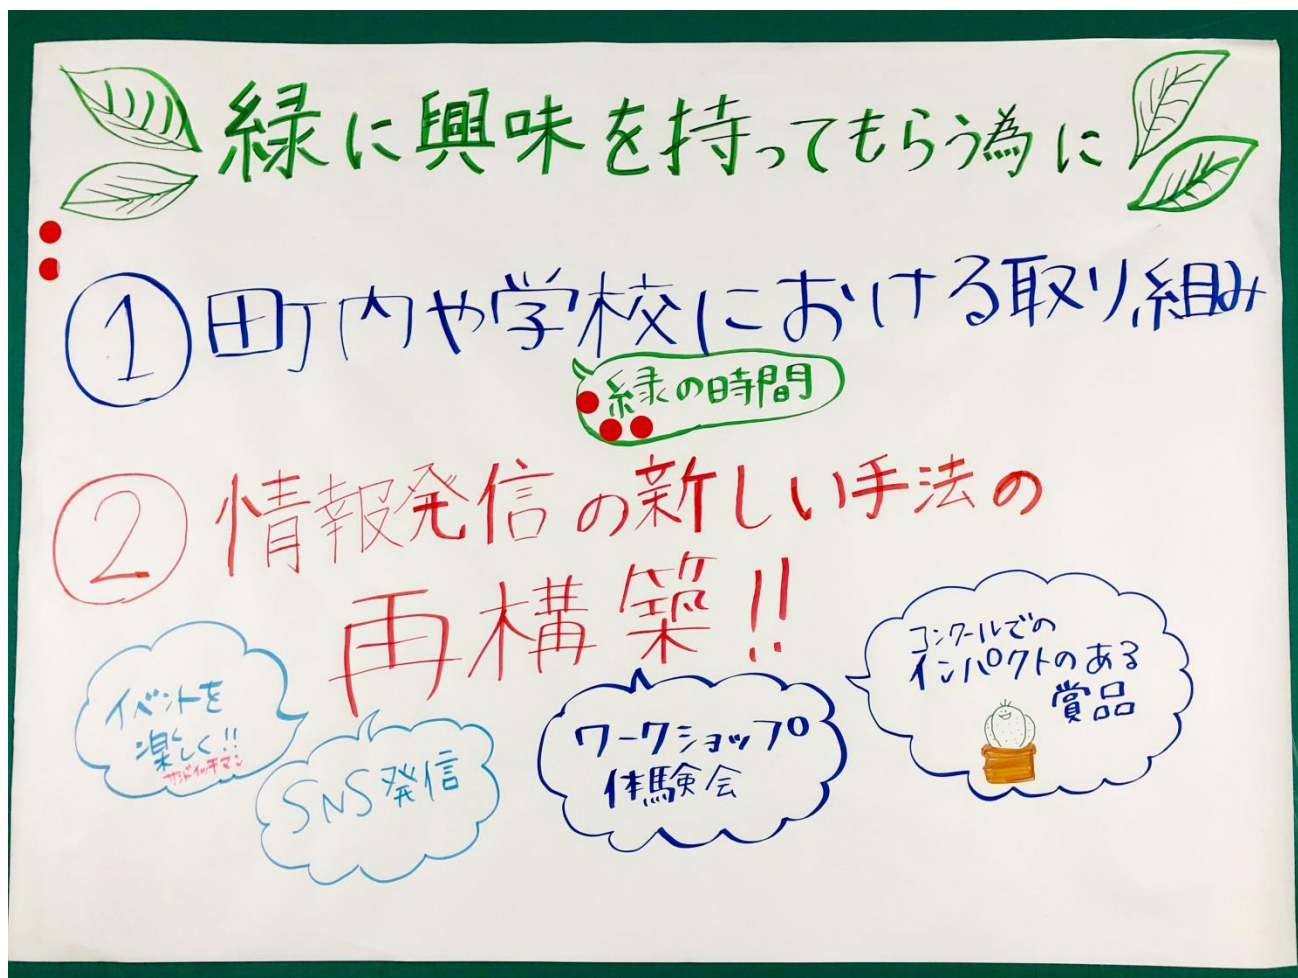 緑に興味を持ってもらう為に
①町内や学校における取り組み
緑の時間
②情報発信の新しい手法の
再構築!!
イベントを
楽しく!!
サンドイッチマン
SNS発信
ワークショップ
体験会
コンクールでの
インパクトのある
賞品